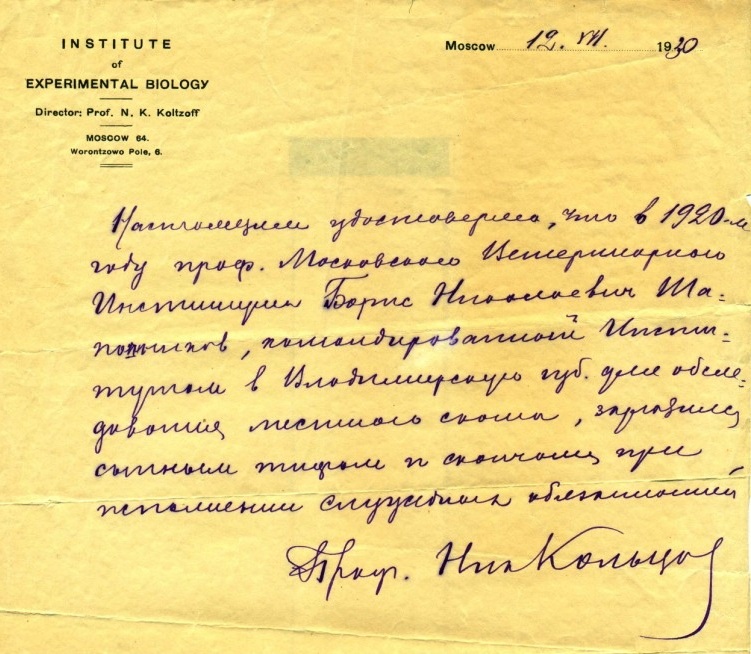 INSTITUTE
of
EXPERIMENTAL BIOLOGY
Director: Prof. N. K. Koltzoff
MOSCOW 64.
Worontzowo Pole, 6.
Moscow 12. VII. 1930
Настоящим удостоверяю, что в 1920-м
году проф. Московского Ветеринарного
Института Борис Николаевич Ша-
пошников, командированный Инсти-
тутом в Владимирскую губ. для обсле-
дования местного скота, заразился
сыпным тифом и скончался при
исполнении служебных обязанностей
Проф. Ник Кольцов